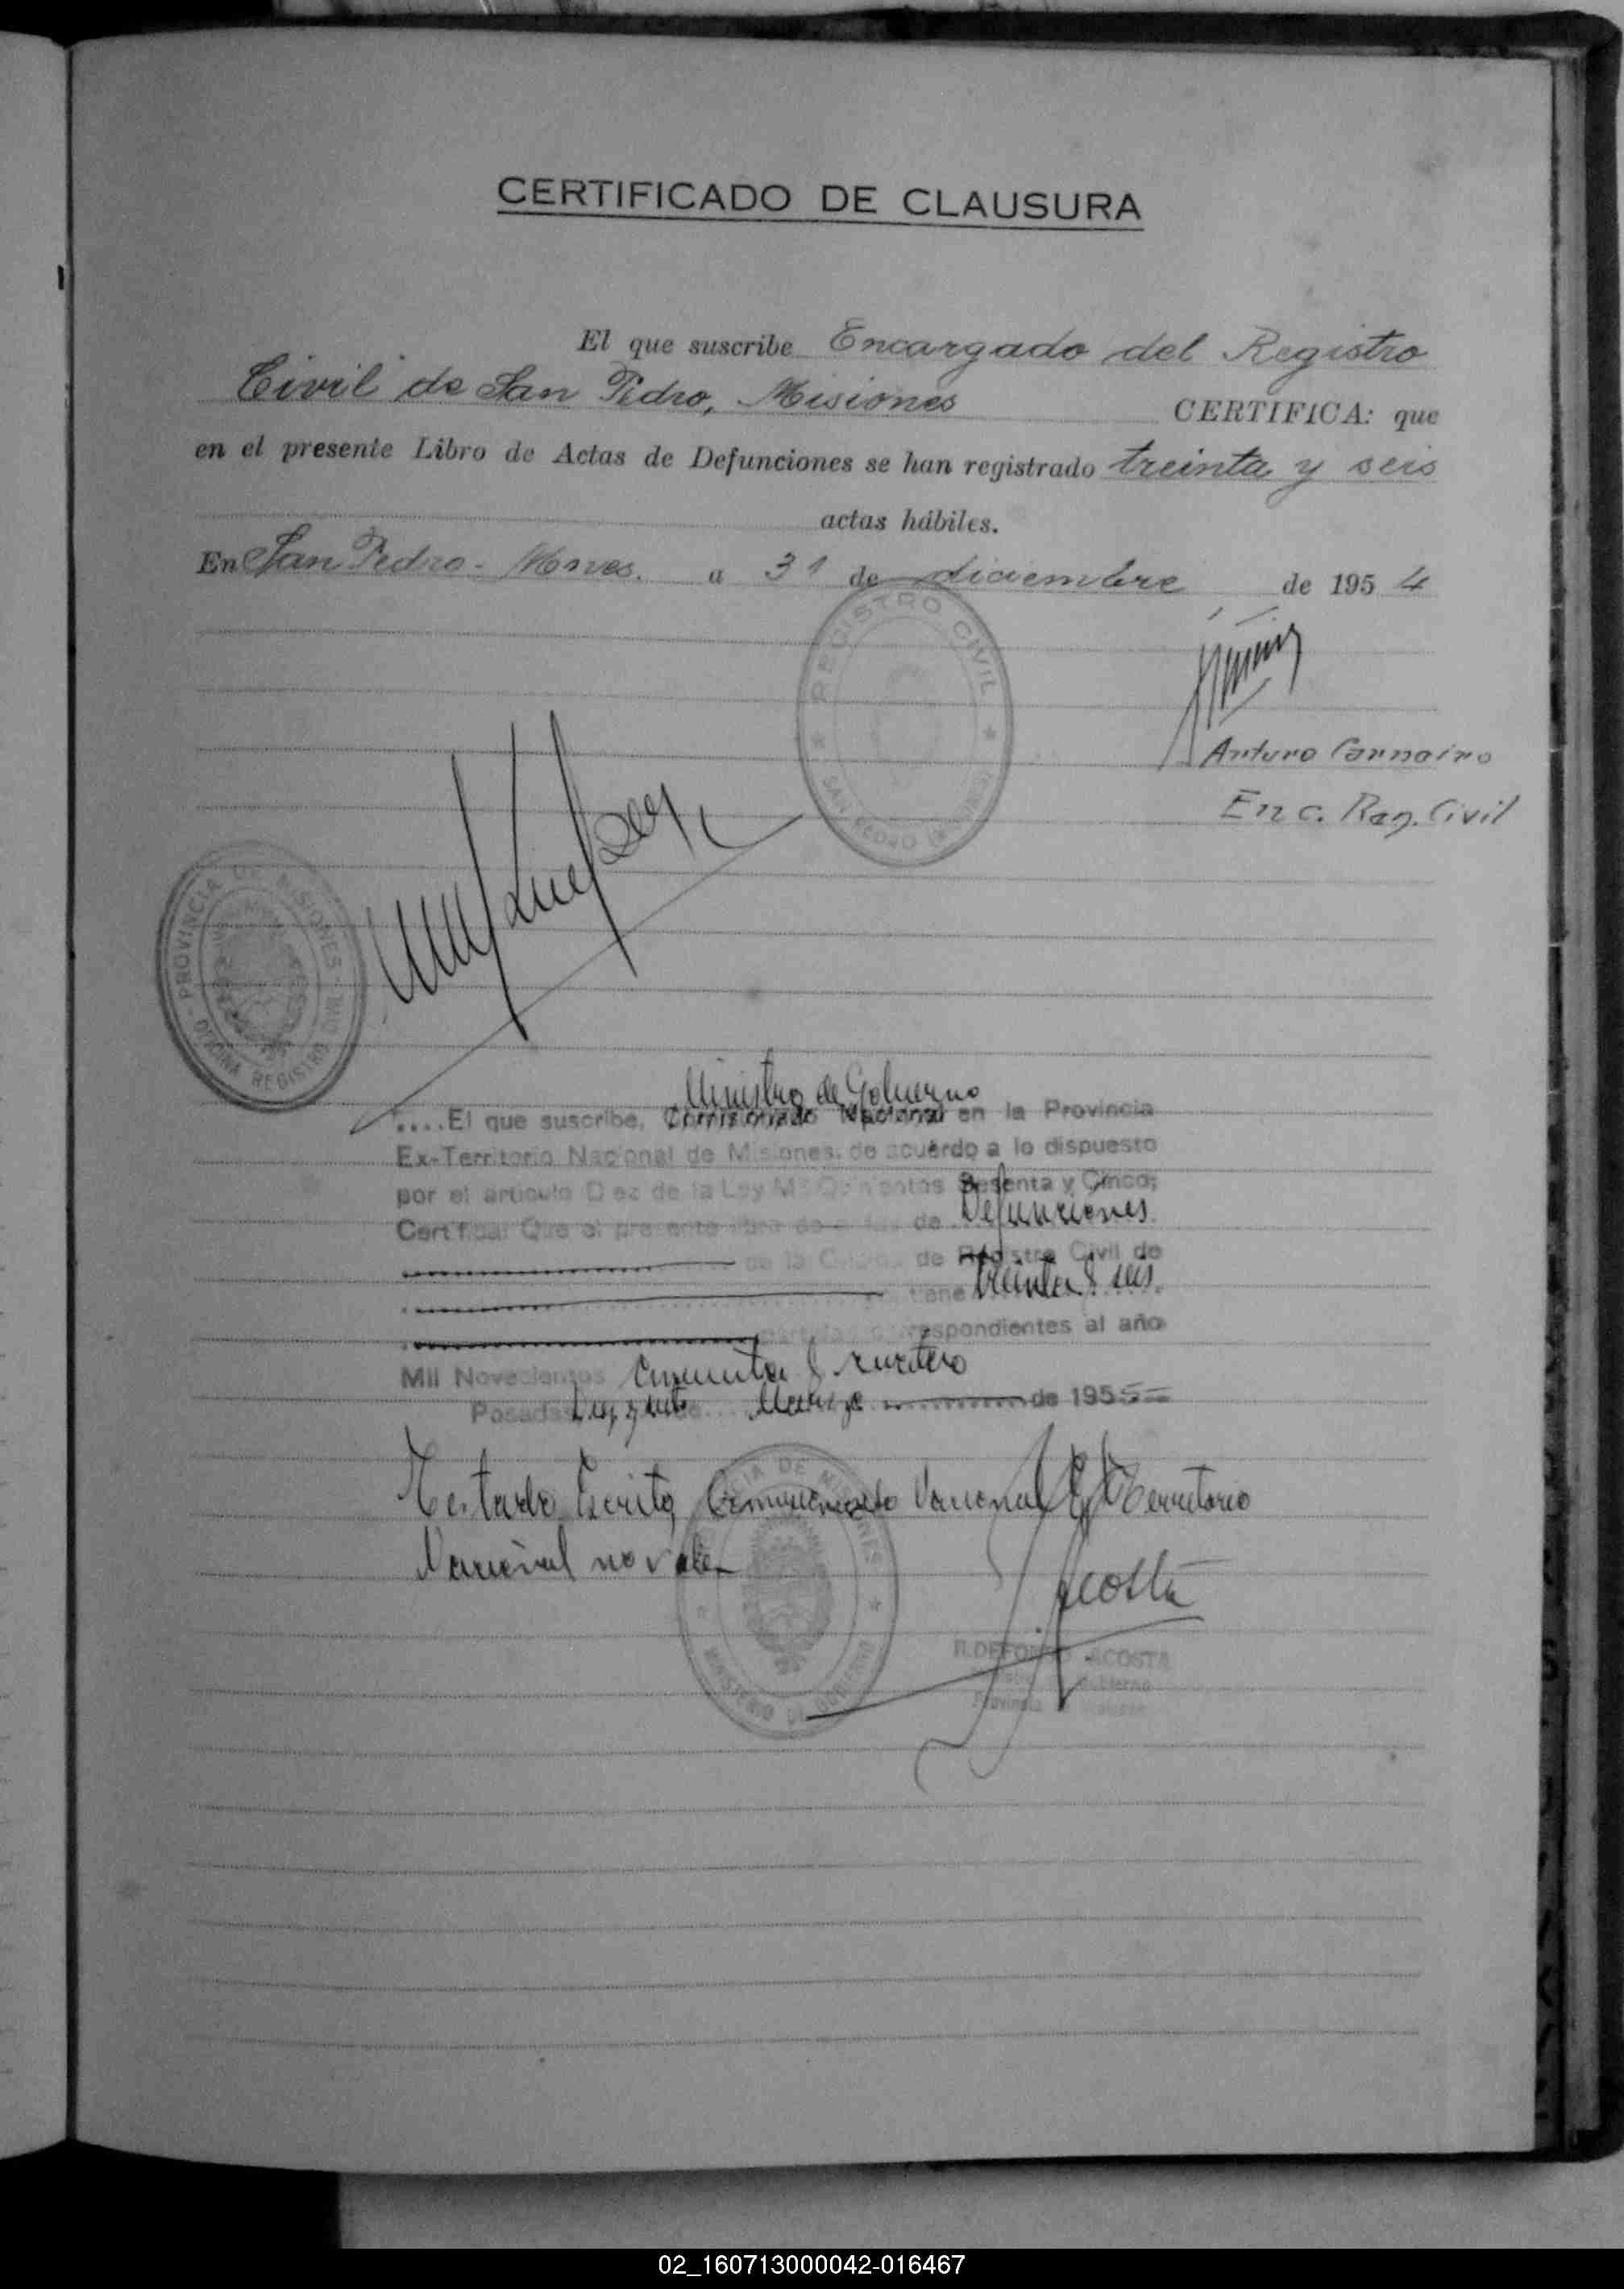 CERTIFICADO DE CLAUSURA
El que suscribe Encargado del Registro
Civil de San Pedro, Misiones CERTIFICA: que
en el presente Libro de Actas de Defunciones se han registrado treinta y seis
actas hábiles.
En San Pedro - Mnes. a 31 de diciembre de 1954
REGISTRO CIVIL
SAN PEDRO
Arturo Carnairo
Enc. Reg. Civil
PROVINCIA DE MISIONES
OFICINA REGISTRO CIVIL
Ministro de Gobierno
....El que suscribe, Comisionado Nacional en la Provincia
Ex-Territorio Nacional de Misiones. de acuerdo a lo dispuesto
por el artículo Diez de la Ley Quinientos Sesenta y Cinco;
Certifica: Que el presente libro de actas de Defunciones
de la de Registro Civil de
tiene treinta y seis
partidas correspondientes al año
Mil Novecientos cincuenta y cuatro
Posadas Marzo de 1955
Testado Escrito, Comisionado Nacional Ex Territorio
Nacional no valen
PROVINCIA DE MISIONES
MINISTERIO DE GOBIERNO
Acosta
ILDEFONSO ACOSTA
Ministro de Gobierno
Provincia de Misiones
02_160713000042-016467